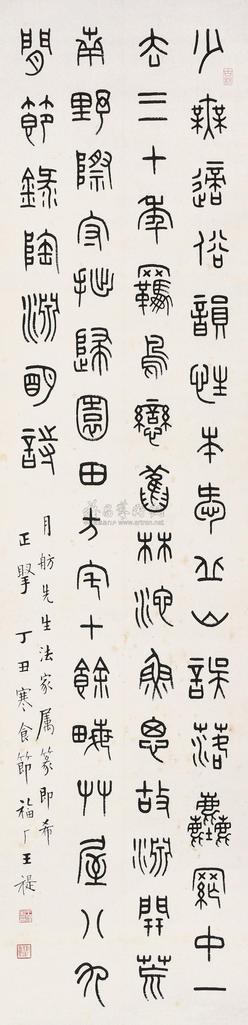 少無適俗韻性本愛丘山誤落塵网中一
去三十年羈鳥戀舊林池魚思故淵開荒
南野際守拙歸園田方宅十餘畮艸屋八九
間節錄陶淵明詩
月舫先生法家属篆即希
正掔 丁丑寒食節福厂王禔